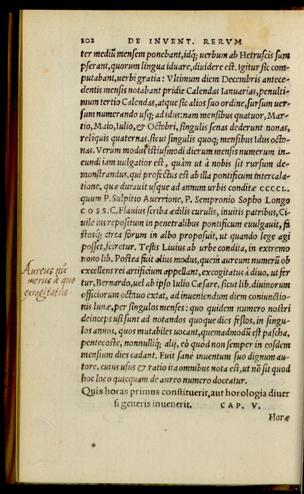 102 DE INVENT. RERVM
ter mediũ mensem ponebant, idq; uerbum ab Hetruscis sum
pserant, quorum lingua iduare, diuidere est. Igitur sic com
putabant, uerbi gratia: Vltimum diem Decembris antece-
dentis mensis notabant pridie Calendas Ianuarias, penulti-
mum tertio Calendas, atque sic alios suo ordine, sursum uer-
sum numerando usq; ad idus: nam mensibus quatuor, Mar-
tio, Maio, Iulio, & Octobri, singulis senas dederunt nonas,
reliquis quaternas, sicut singulis quoq; mensibus Idus octo-
nas. Verum modus istiusmodi dierum mensis numerum in-
eundi iam uulgatior est, quàm ut à nobis sit rursum de-
monstrandus, qui profectus est ab illa pontificum intercala-
tione, quæ durauit usque ad annum urbis condite CCCCL.
quum P. Sulpitio Auerrione, P. Sempronio Sopho Longo
COSS. C. Flauius scriba ædilis curulis, inuitis patribus, Ci-
uile ius repositum in penetralibus pontificum euulgauit, fa
stosq; circa forum in albo proposuit, ut quando lege agi
posset, sciretur. Testis Liuius ab urbe condita, in extremo
nono lib. Postea fuit alius modus, quem aureum numerũ ob
excellens rei artificium appellant, excogitatus à diuo, ut fer
tur, Bernardo, uel ab ipso Iulio Cæsare, sicut lib. diuinorum
officiorum octauo extat, ad inueniendum diem coniunctio-
nis lunæ, per singulos menses: quo quidem numero nostri
deinceps usi sunt ad notandos quoque dies festos, in singu-
los annos, quos mutabiles uocant, quemadmodũ est pascha,
pentecoste, nonnulliq; alij, eò quod non semper in eosdem
mensium dies cadant. Fuit sanè inuentum suo dignum au-
tore, cuius usus & ratio ita omnibus nota est, ut nõ sit quod
hoc loco quicquam de aureo numero doceatur.
Quis horas primus constituerit, aut horologia diuer
si generis inuenerit. CAP. V.
Horæ
Aureus nũ
merus à quo
excogitatus